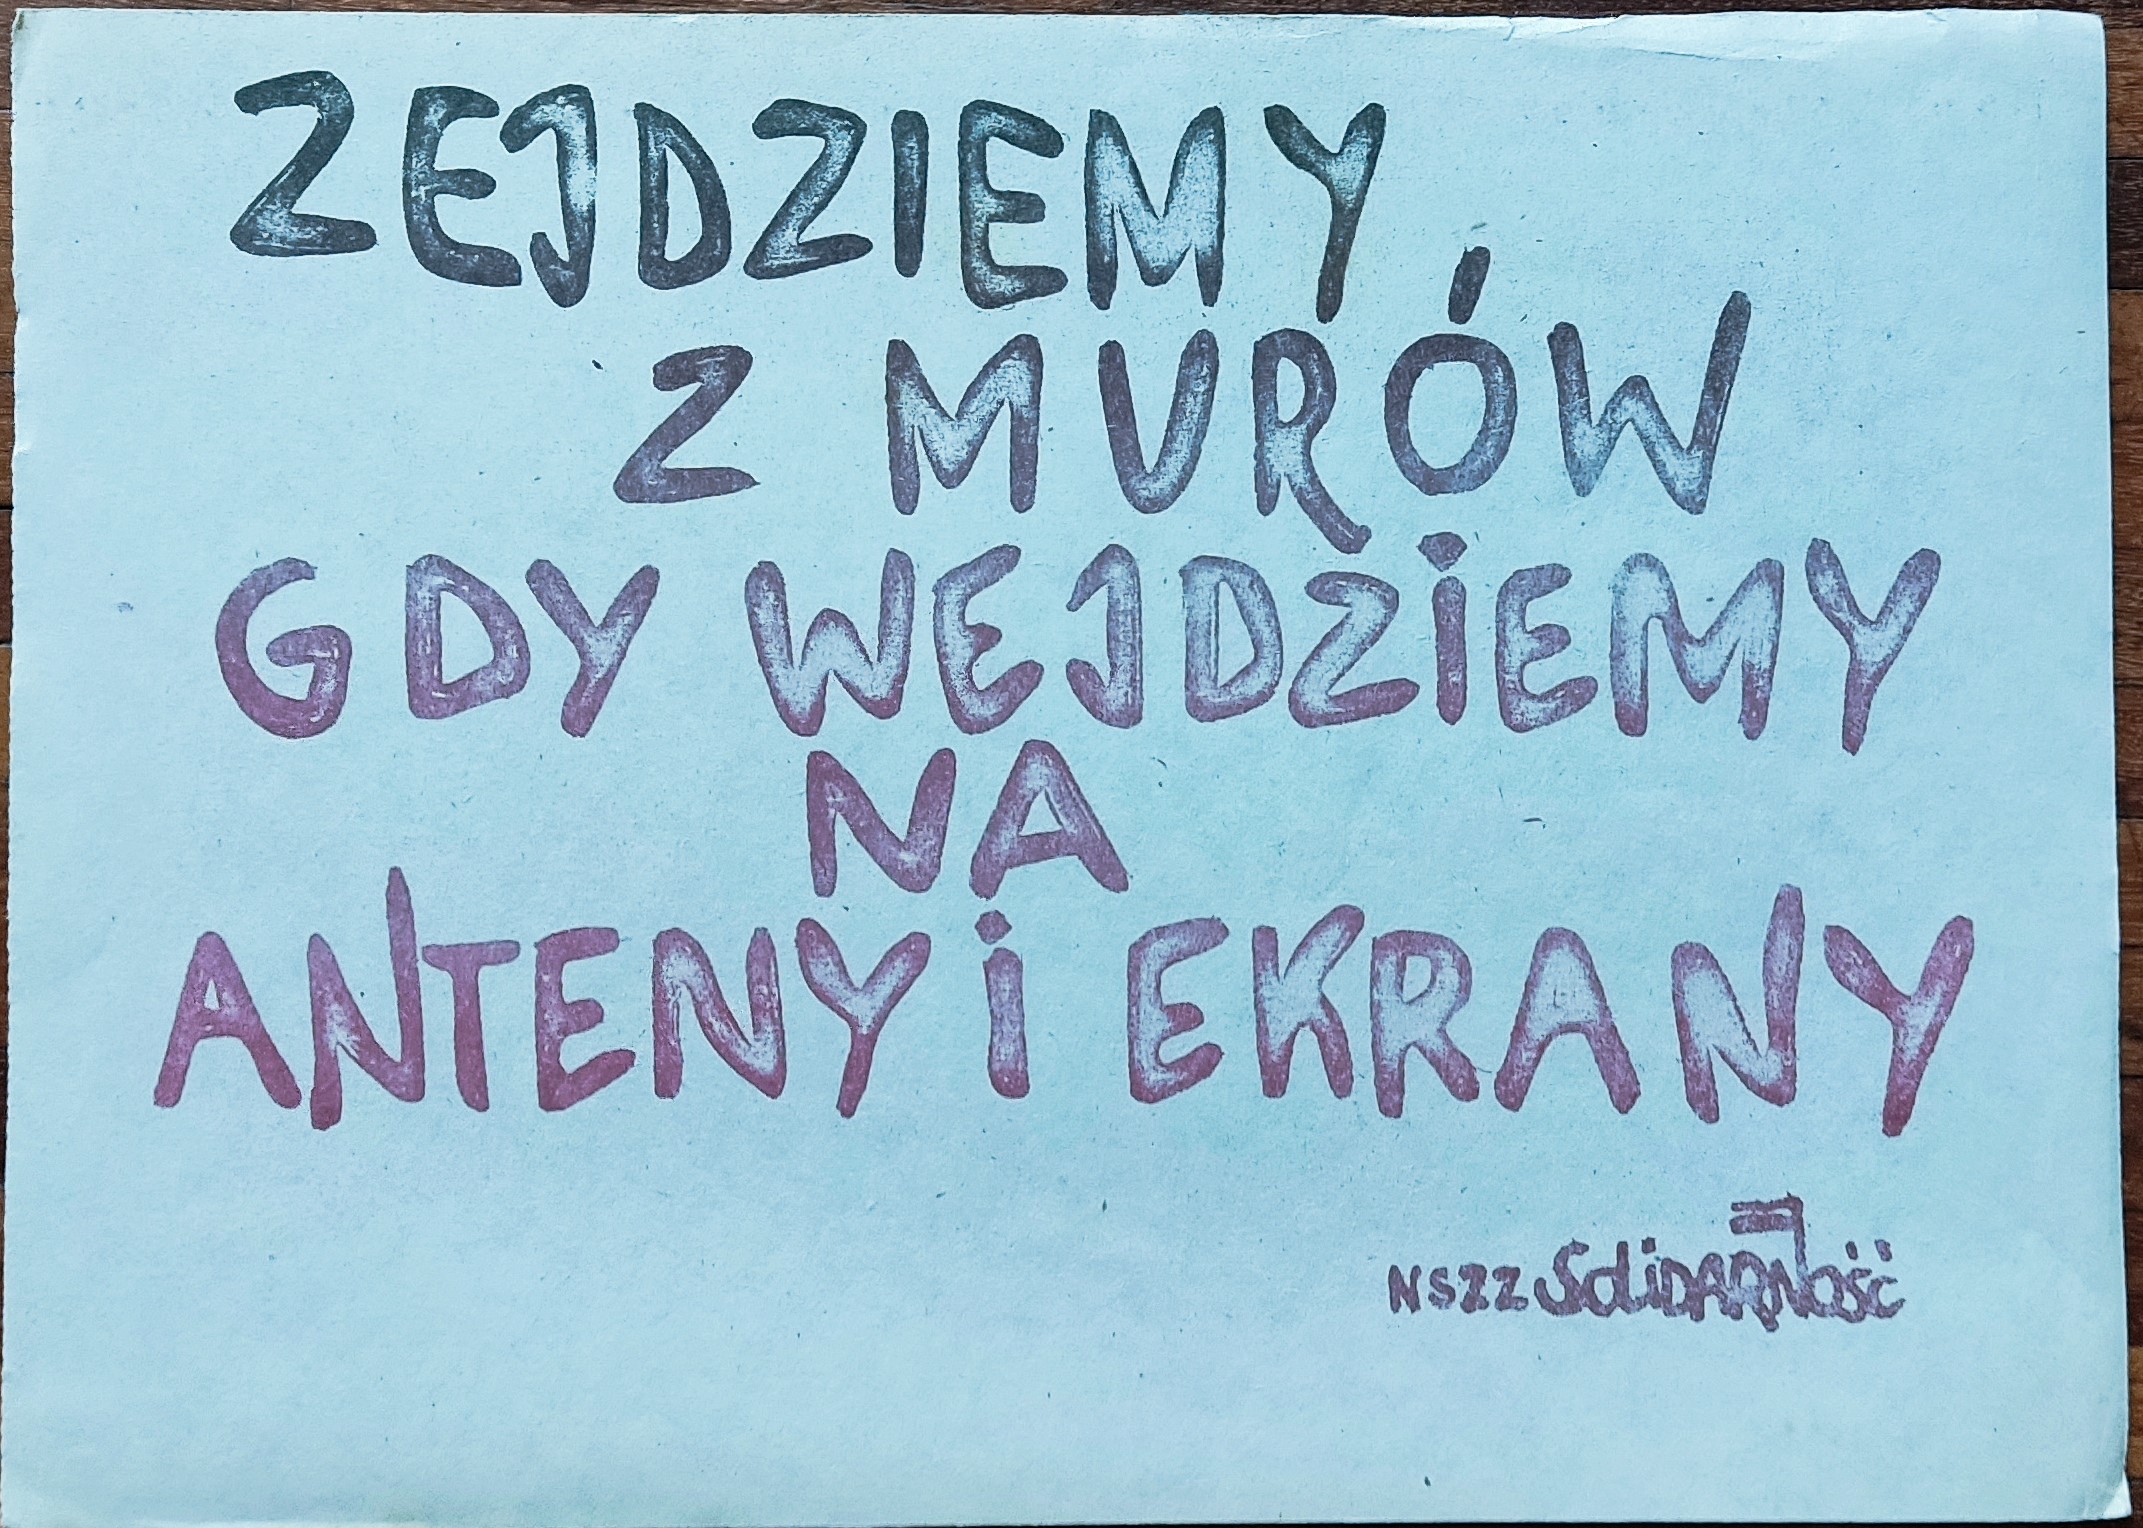 ZEJDZIEMY
Z MURÓW
GDY WEJDZIEMY
NA
ANTENY i EKRANY
NSZZ SOLiDARNOŚĆ